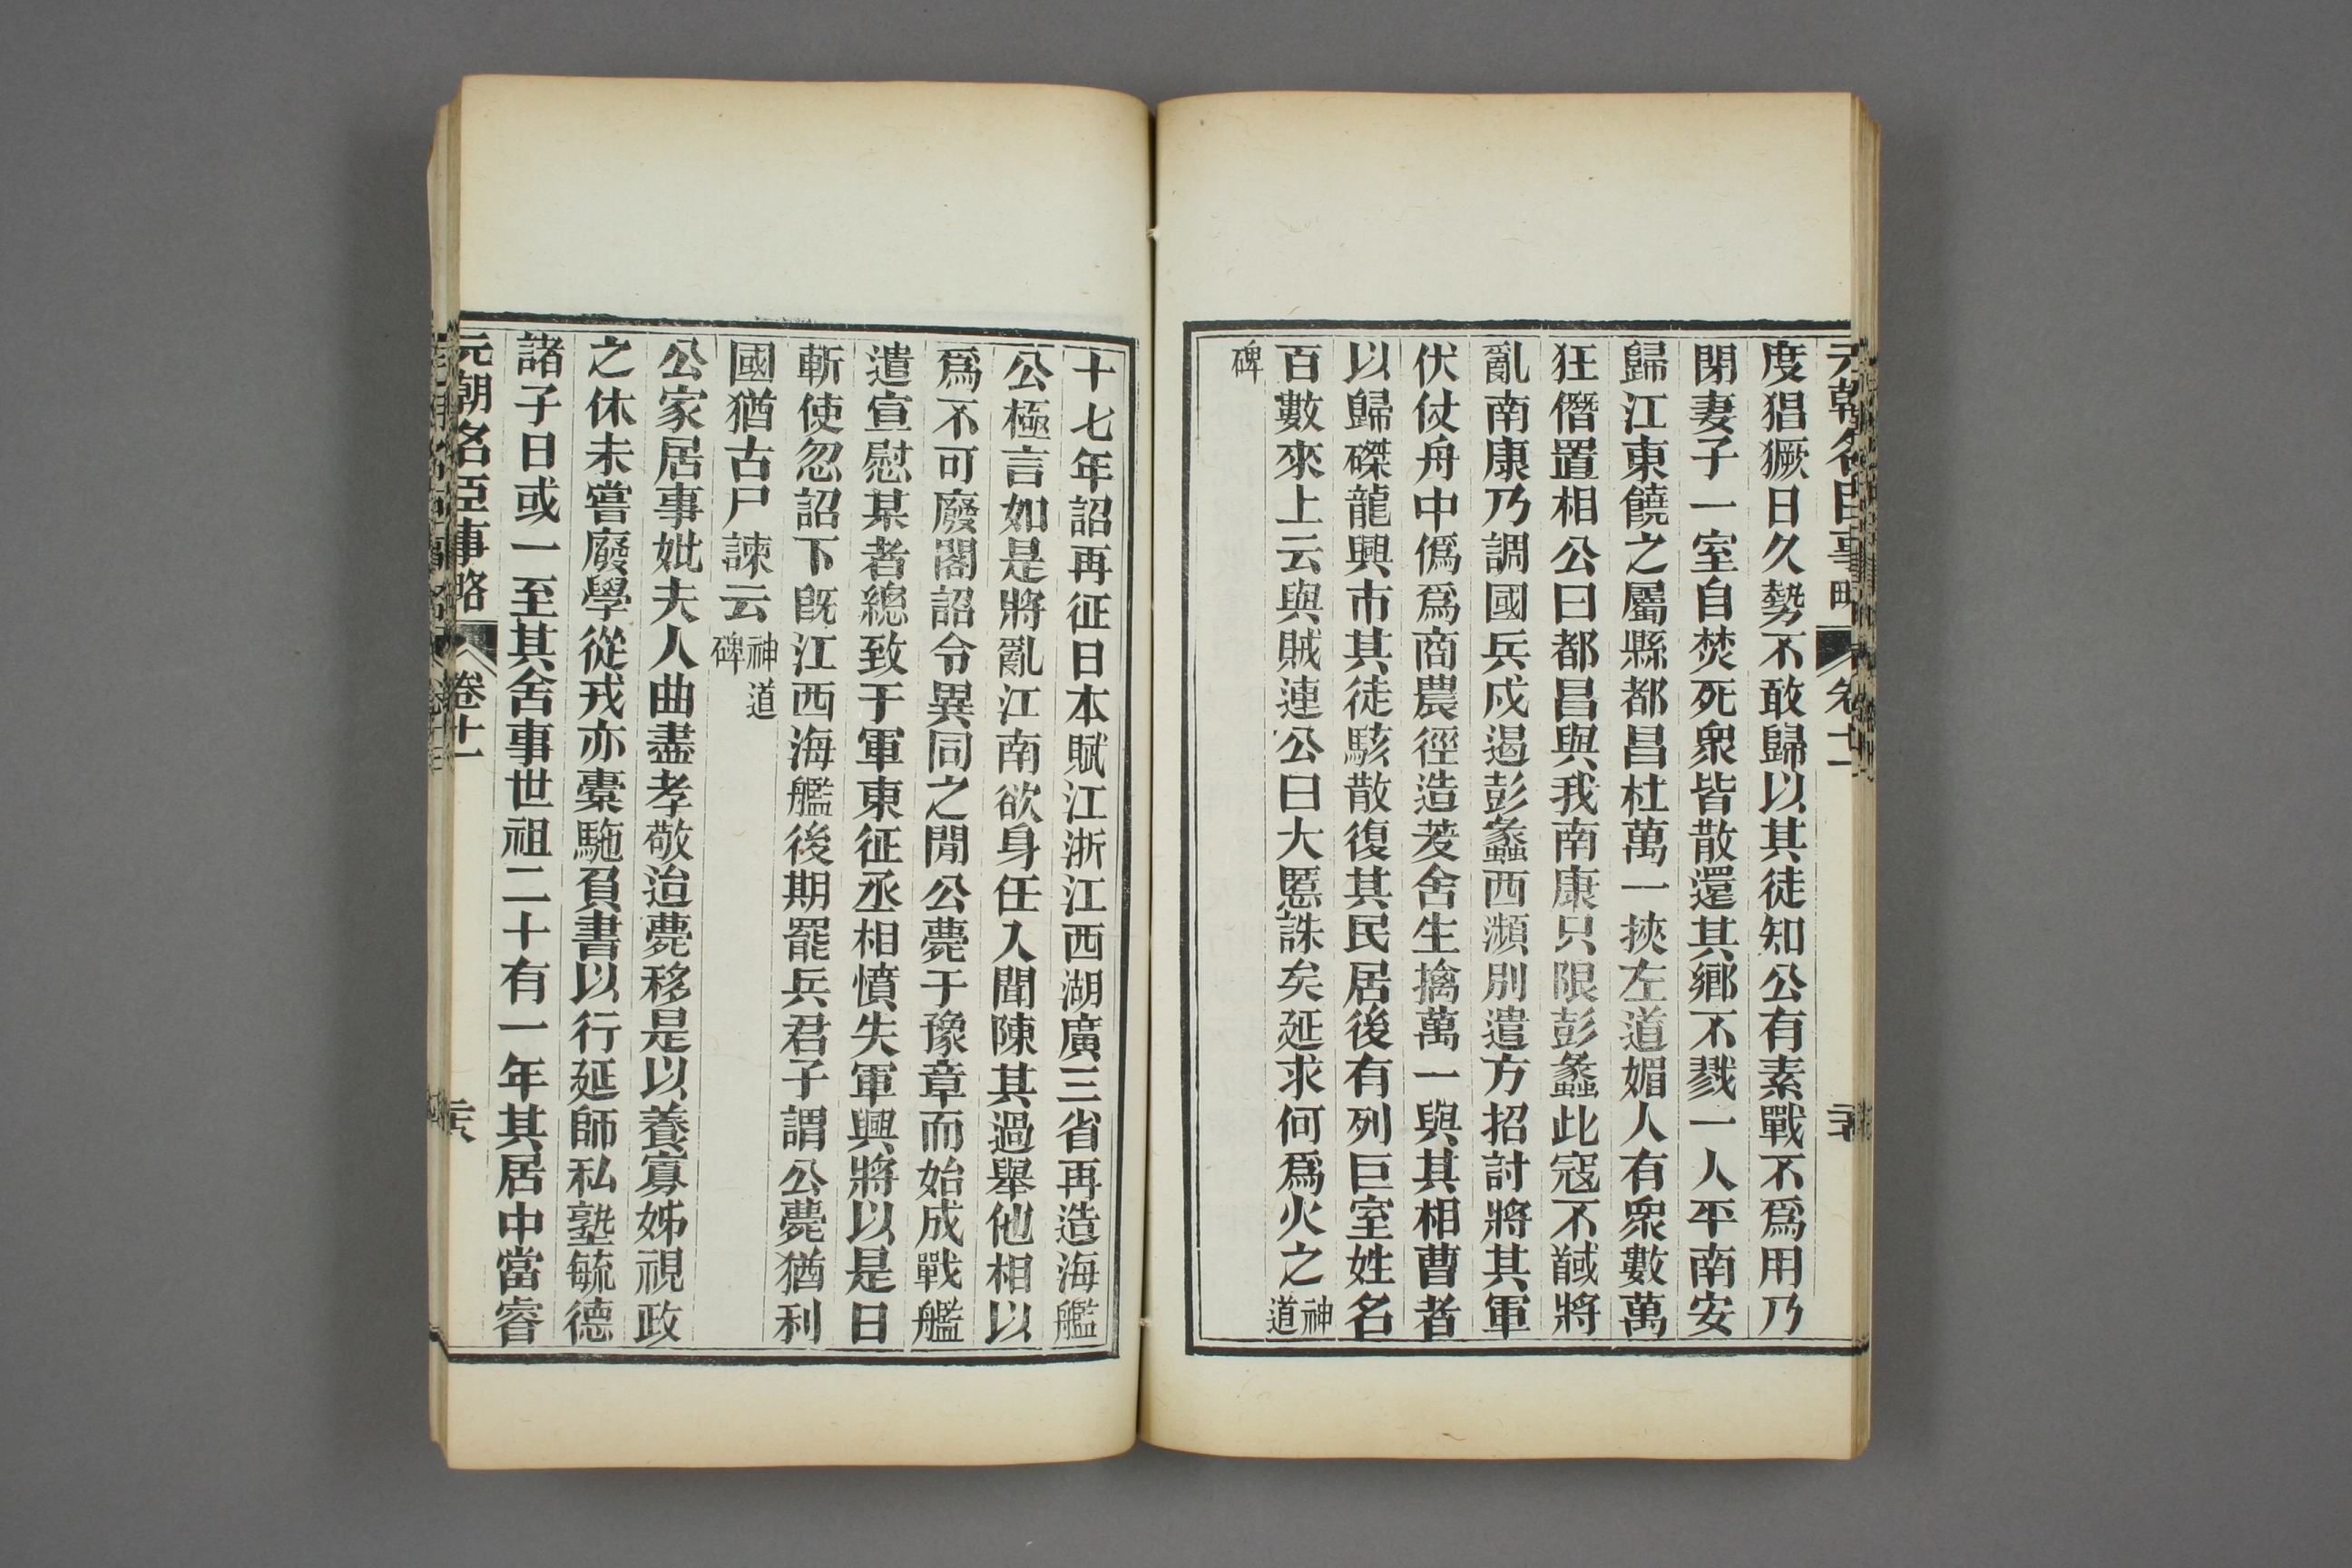 元朝名臣事略 卷十一
度猖獗日久勢不敢歸以其徒知公有素戰不爲用乃
閉妻子一室自焚死衆皆散還其鄉不戮一人平南安
歸江東饒之屬縣都昌杜萬一挾左道媚人有衆數萬
狂僭置相公曰都昌與我南康只限彭蠡此寇不馘將
亂南康乃調國兵戍遏彭蠡西瀕別遣方招討將其軍
伏仗舟中僞爲商農徑造茇舍生擒萬一與其相曹者
以歸磔龍興市其徒駭散復其民居後有列巨室姓名
百數來上云與賊連公曰大慝誅矣延求何爲火之神道
碑
十七年詔再征日本賦江浙江西湖廣三省再造海艦
公極言如是將亂江南欲身任入聞陳其過舉他相以
爲不可廢閣詔令異同之閒公薨于豫章而始成戰艦
遣宣慰某者總致于軍東征丞相憤失軍興將以是日
斬使忽詔下旣江西海艦後期罷兵君子謂公薨猶利
國猶古尸諫云神道碑
公家居事妣夫人曲盡孝敬迨薨移是以養寡姊視政
之休未嘗廢學從戎亦橐駞負書以行延師私塾毓德
諸子日或一至其舍事世祖二十有一年其居中當睿
元朝名臣事略 卷十一